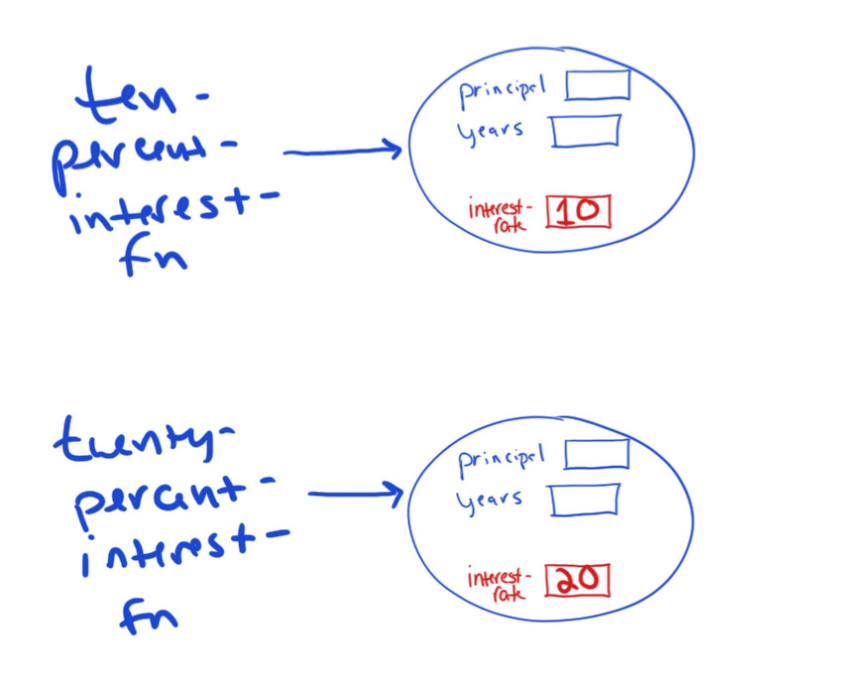 ten-
percent-
interest-
fn
principal
years
interest-
rate
10
twenty-
percent-
interest-
fn
principal
years
interest-
rate
20